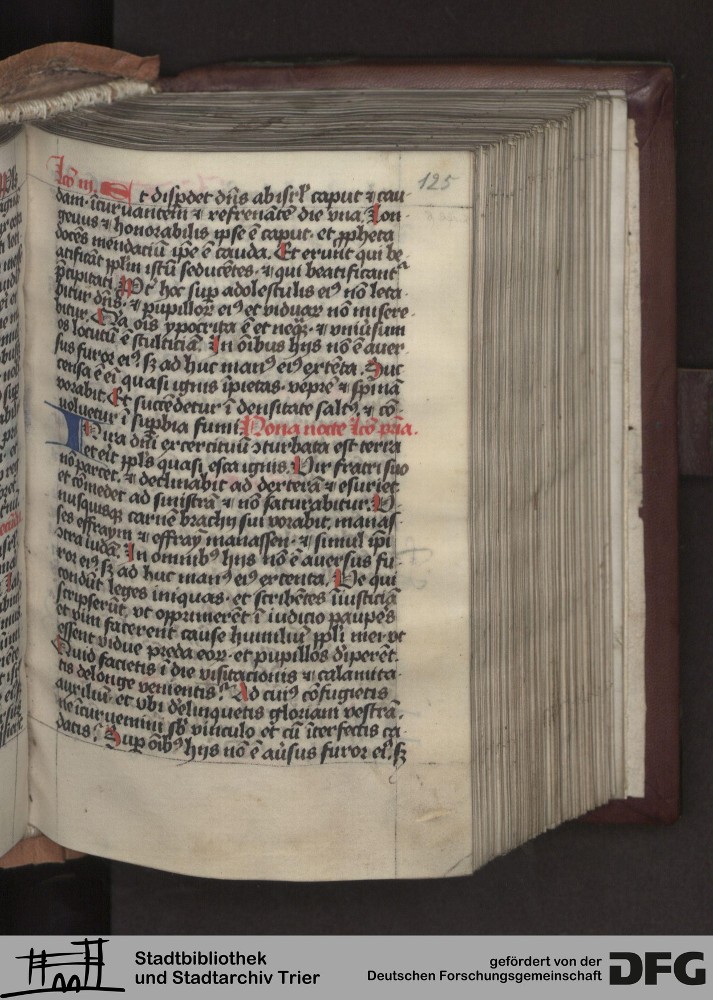 125
Et dispdet dns ab isrl caput et cau
dam. icurvantem et refrenate die vna. Lon
geuus et honorabilis ipse ē caput. et ppheta
docēs mendaciū ipe ē cauda. Et erunt qui be
atificāt pplm istū seducētes. et qui beatificant
pcipitati. Pt hoc sup adolescētulis eiꝰ nō leta
bitur dns. et pupilloꝝ eiꝰ et viduaꝝ nō misere
bitur. Qia oīs ypocrita ē et neqͣ. et vniūsum
os locutū ē stulticiā. In oībus hijs nō ē auer
sus furor eiꝰ sꝫ ad huc manꝰ eiꝰ extēta. Suc
censa ē ei quasi ignis īpietas. veprē et spinā
vorabit. Et succedetur ī densitate saltꝰ. et cō
voluetur ī supbia fumi. Nona nocte lcō pīa.
In ira dni exercituū ɔturbata est terra
et eit ppls quasi esca ignis. Vir fratri suo
nō parcet. et declinabit ad dexterā et esuriet
et cōmedet ad sinistrā et nō saturabitur. V
nusquisqꝫ carnē brachij sui vorabit. manas
ses effraym et effraȳ manassen. et simul ipi
ɔtra iudā. In omnibꝰ hijs nō ē aversus fu
ror eiꝰ sꝫ ad huc manꝰ eiꝰ extenta. Ve qui
condūt leges iniquas. et scribētes iīusticiā
scripserūt. vt opprimerēt ī iudicio paupēs
et vim facerent cause humiliū ppli mei vt
essent vidue preda eoꝝ. et pupillos diperēt.
Quid facietis ī die visitacionis et calamita
tis delonge venientis. Ad cuiꝰ cōfugietis
auxiliū. et vbi delinquetis gloriam vestrā.
ne icurvemini sb vinculo et cū īterfectis ca
datis. Sup oībꝰ hijs nō ē aūsus furor eiꝰ. sꝫ
Stadtbibliothek
und Stadtarchiv Trier
gefördert von der
Deutschen Forschungsgemeinschaft DFG